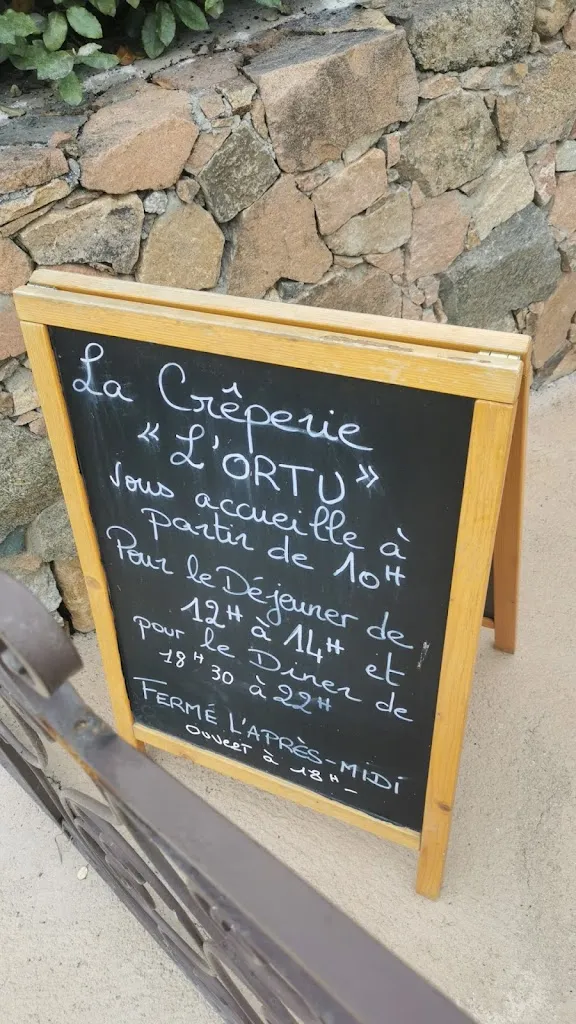 La Crêperie
« L'ORTU »
vous accueille à
partir de 10H
Pour le Déjeuner de
12H à 14H et
pour le Diner de
18H30 à 22H
FERMÉ L'APRÈS-MIDI
OUVERT à 18H-